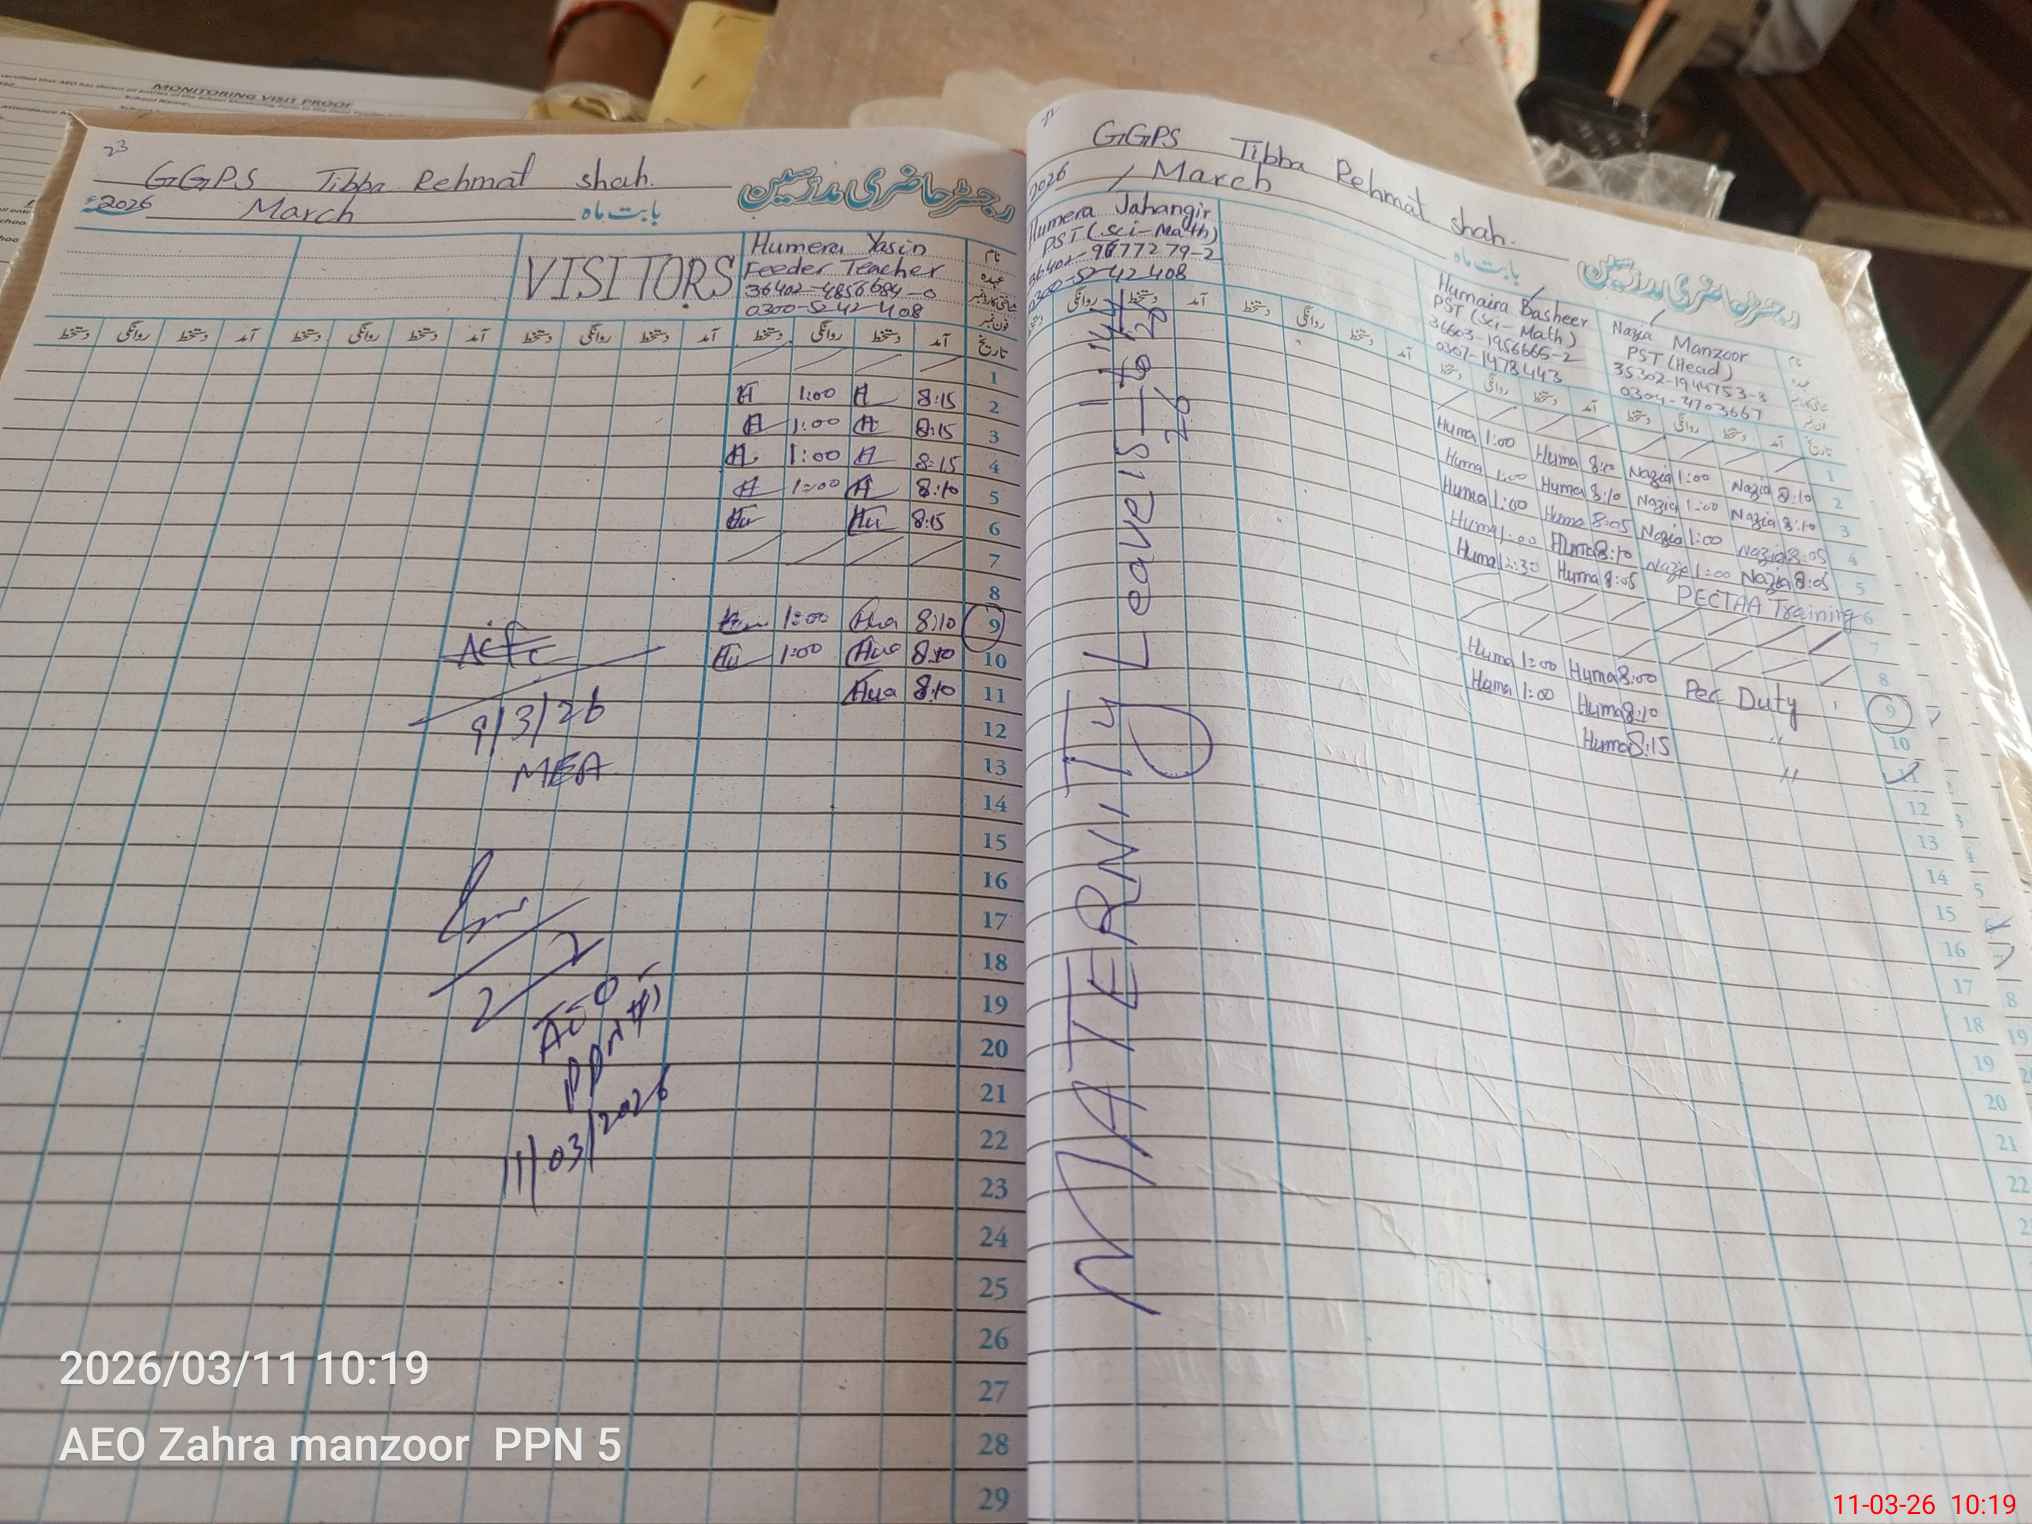 MONITORING VISIT PROOF
23
GGPS Tibba Rehmat shah.
رجسٹر حاضری مدرسین
2026 March بابت ماہ
VISITORS
Humera Yasin
Feeder Teacher
36402-4856684-0
0300-5242408
نام
عہدہ
فون نمبر
تاریخ آمد دستخط روانگی دستخط آمد دستخط روانگی دستخط آمد دستخط روانگی دستخط آمد دستخط روانگی دستخط
1
2 8:15 H 1:00 H
3 8:15 H 1:00 H
4 8:15 H 1:00 H
5 8:10 H 1:00 H
6 8:15 Hu Hu
7
8
9 8:10 Hua 1:00
10 8:10 Hua 1:00 Hu
11 8:10 Hua
12
13
14
15
16
17
18
19
20
21
22
23
24
25
26
27
28
29
9/3/26
MEA
AEO
11/03/2026
GGPS Tibba Rehmat shah.
2026 March
بابت ماہ
رجسٹر حاضری مدرسین
Humera Jahangir
PST (Sci-Math)
0300-5242408
Humaira Basheer
PST (Sci-Math)
36603-1956665-2
0307-1478443
Nazia Manzoor
PST (Head)
35302-1944753-3
0304-4703667
دستخط روانگی دستخط آمد دستخط روانگی دستخط آمد دستخط روانگی دستخط آمد دستخط روانگی دستخط آمد تاریخ
1
Huma 1:00 Huma 8:10 Nazia 1:00 Nazia 8:10 2
Huma 1:00 Huma 8:10 Nazia 1:00 Nazia 8:10 3
Huma 1:00 Huma 8:05 Nazia 1:00 Nazia 8:05 4
Huma 1:00 Huma 8:10 Nazia 1:00 Nazia 8:05 5
Huma 12:30 Huma 8:05 PECTAA Training 6
7
8
Huma 1:00 Huma 8:00 Pec Duty 9
Huma 1:00 Huma 8:10 " 10
Huma 8:15 " 11
12
13
14
15
16
17
18
19
20
21
22
MATERNITY Leave
2026/03/11 10:19
AEO Zahra manzoor PPN 5
11-03-26 10:19